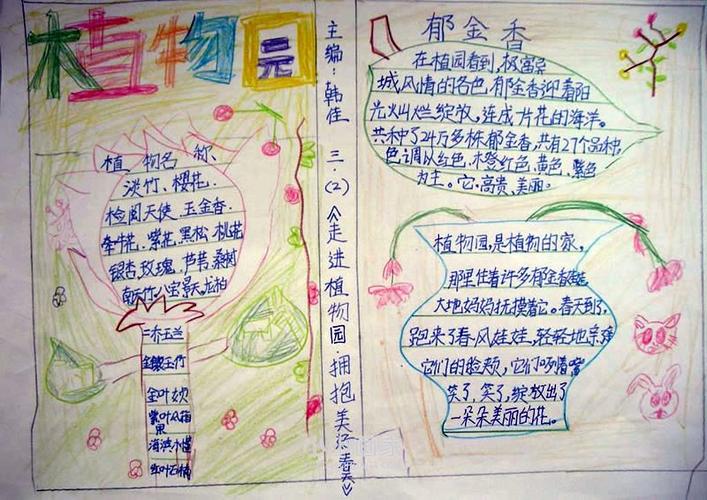 植物园
植物名称
淡竹、樱花、
检阅天使、玉金香、
牵牛花、紫花、黑松、桃花
银杏、玫瑰、芦苇、桑树
南天竹、八宝景天、龙柏
二乔玉兰
金镶玉竹
金叶女贞
紫叶风箱
果
海滨木槿
红叶石楠
主编：韩佳 三·(2)《走进植物园 拥抱美洛春天》
郁金香
在植园看到，极富异
城风情的各色郁金香迎着阳
光火山烂绽放，连成片花的海洋。
共种了24万多株郁金香，共有27个品种，
色调以红色、木橙红色、黄色、紫色
为主。它高贵、美丽。
植物园，是植物的家，
那里住着许多郁金香
大地妈妈抚摸着它。春天到了，
跑来了春风娃娃，轻轻地亲
它们的脸颊，它们
笑了，笑了，绽放出了
一朵朵美丽的花。